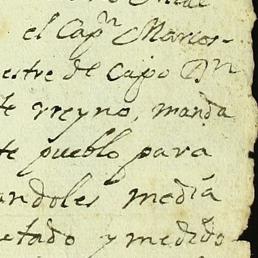 el Cap.n Marcos
estre de Canpo D.n
te rreyno, manda
te pueblo para
andoles media
etado y medido